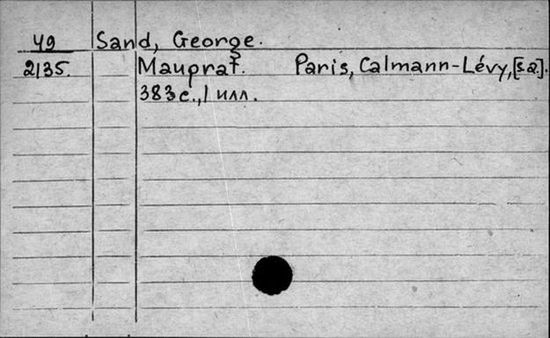 49 Sand, George.
2135. Mauprat. Paris, Calmann-Lévy, [s.a.].
383 с., 1 илл.